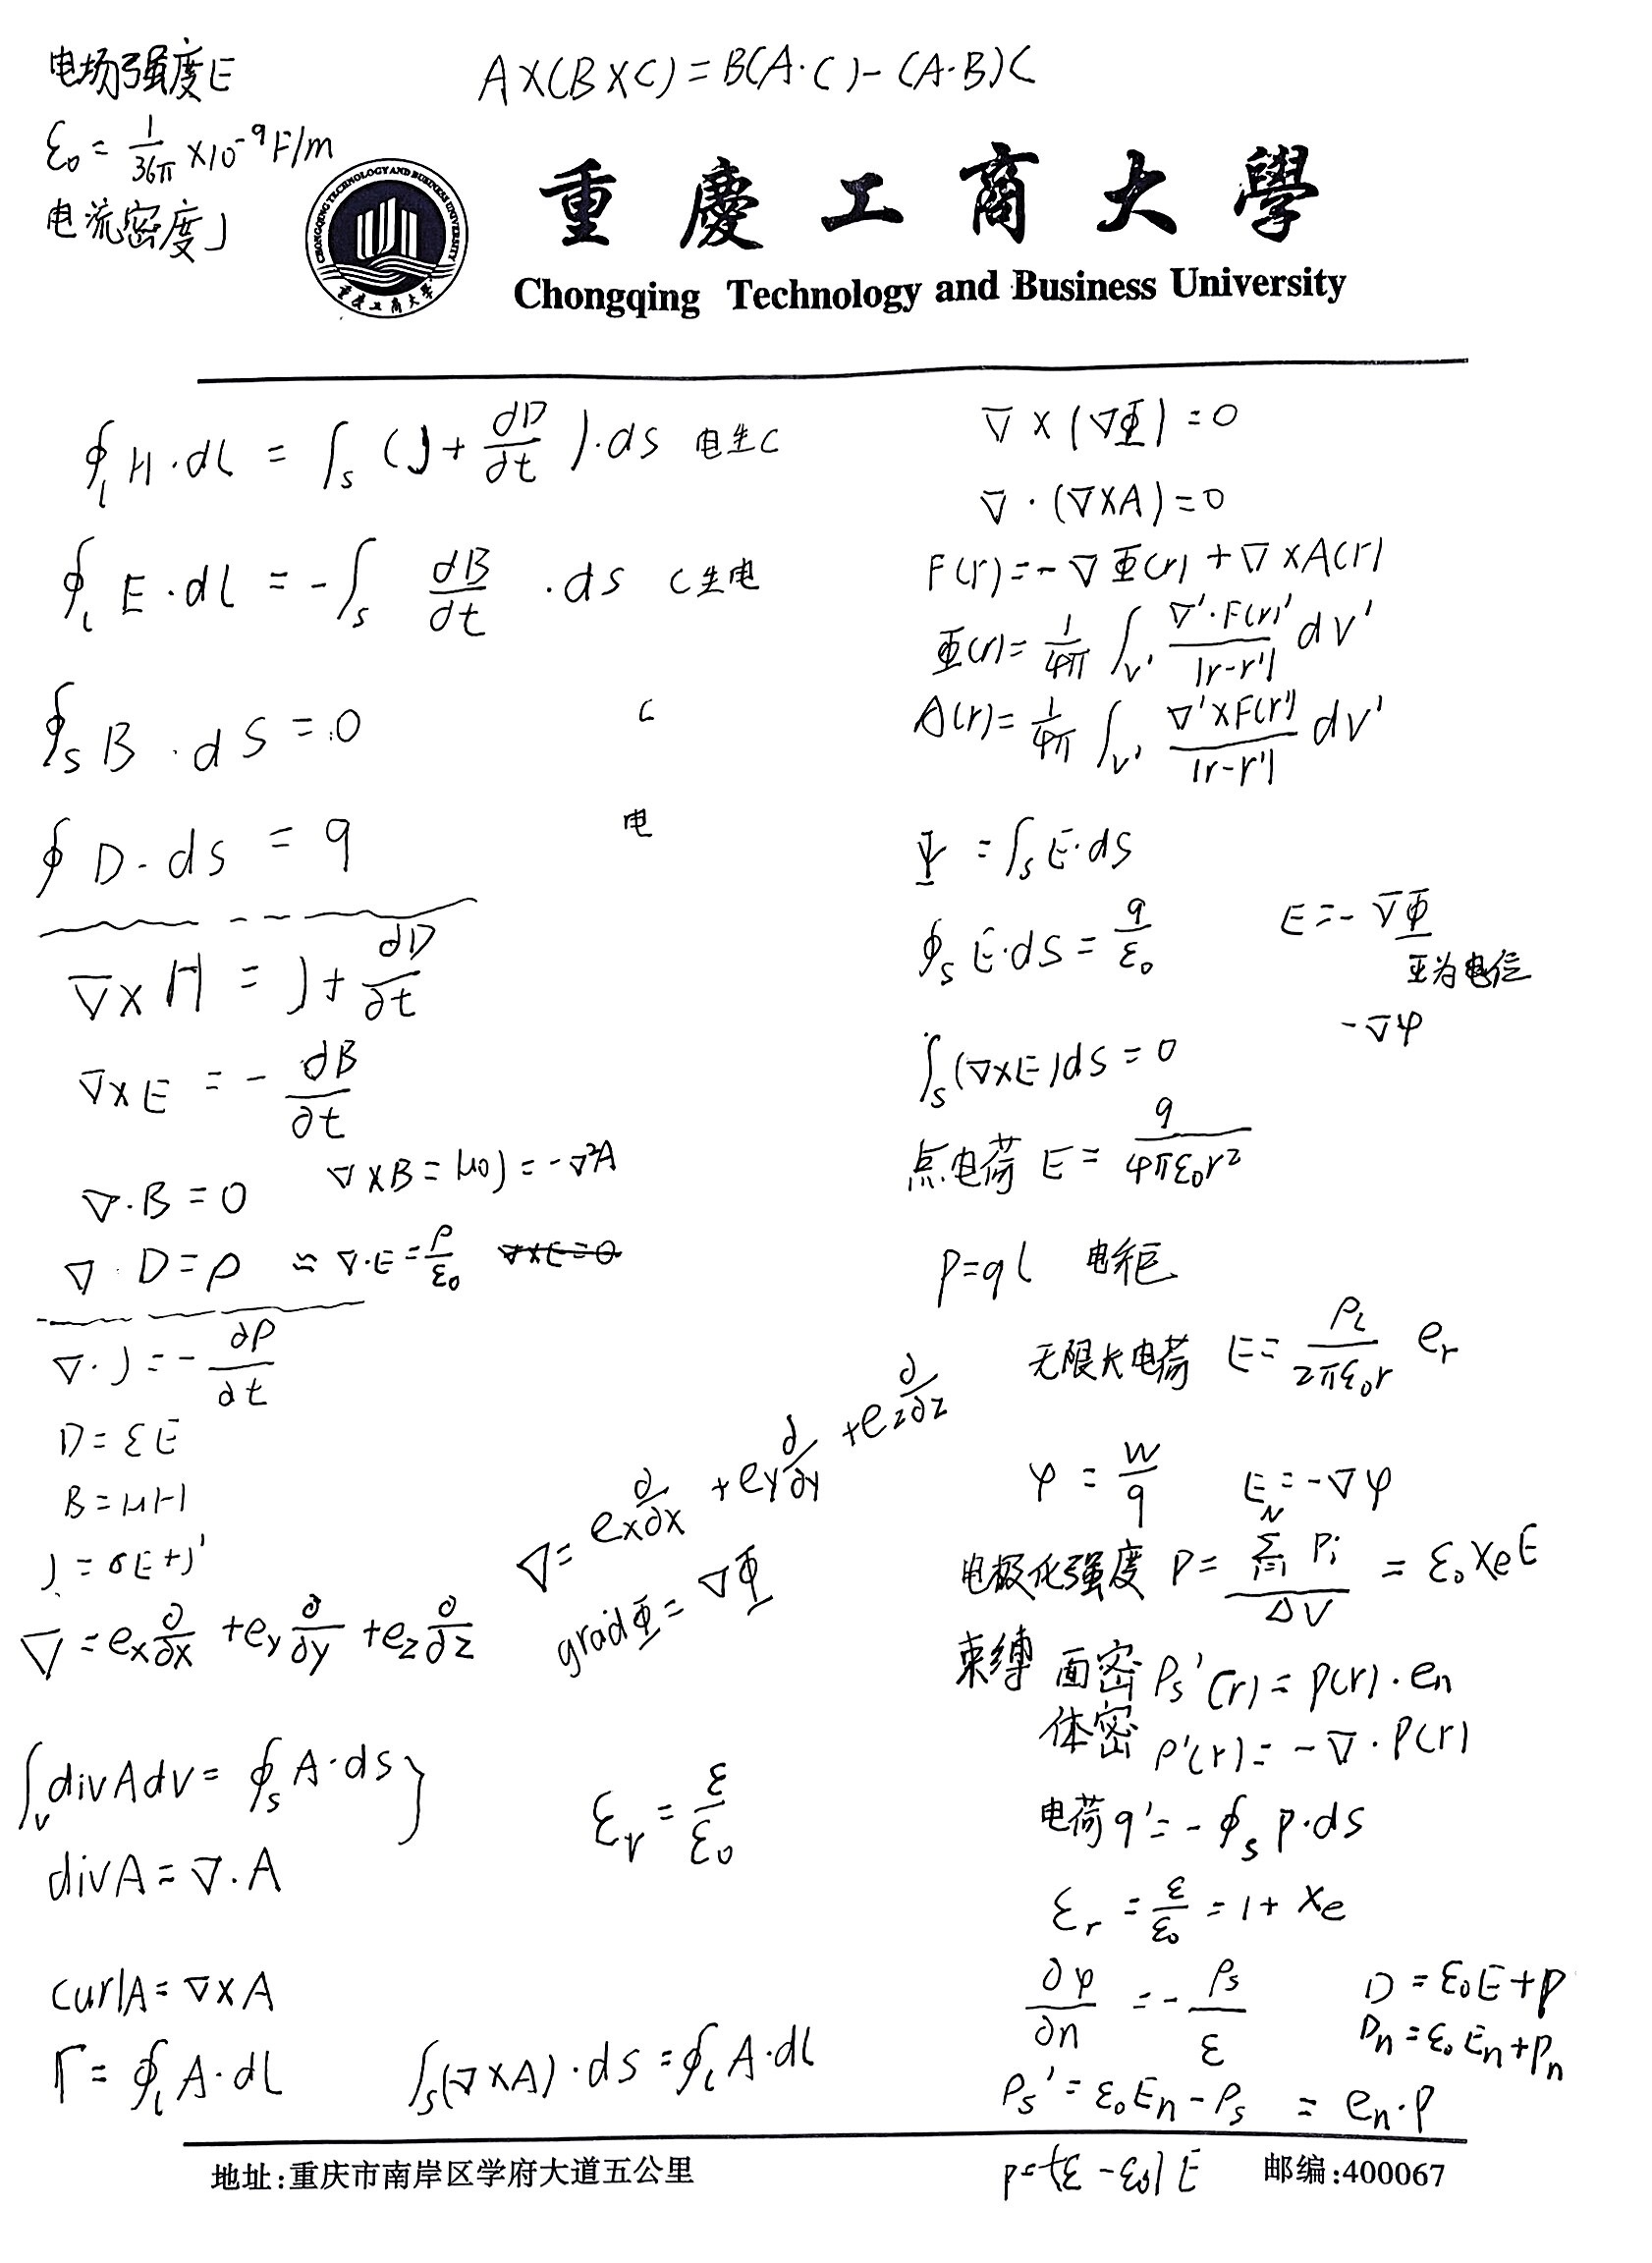 电场强度E
A×(B×C)=B(A·C)-(A·B)C
ε₀=1/36π ×10⁻⁹F/m
电流密度J
CHONGQING TECHNOLOGY AND BUSINESS UNIVERSITY
重庆工商大学
重慶工商大學
Chongqing Technology and Business University
∮l H·dl = ∫s (J+∂D/∂t)·ds 电生C
∮l E·dl = -∫s ∂B/∂t ·ds C生电
∮s B·dS=0 C
∮ D·ds = q 电
∇×H = J+∂D/∂t
∇×E = -∂B/∂t
∇·B=0 ∇×B=μ₀J=-∇²A
∇·D=ρ ≈ ∇·E=ρ/ε₀ ∇×E=0
∇·J=-∂ρ/∂t
D=εE
B=μH
J=σE+J'
∇=ex ∂/∂x +ey ∂/∂y +ez ∂/∂z
∇=ex ∂/∂x +ey ∂/∂y +ez ∂/∂z
gradΦ=∇Φ
∫v divAdv=∮s A·ds}
divA=∇·A
εr=ε/ε₀
curlA=∇×A
Γ=∮l A·dl ∫s(∇×A)·ds=∮l A·dl
∇×(∇Φ)=0
∇·(∇×A)=0
F(r)=-∇Φ(r)+∇×A(r)
Φ(r)=1/4π ∫v' ∇'·F(r)'/|r-r'| dV'
A(r)=1/4π ∫v' ∇'×F(r')/|r-r'| dV'
Ψ=∫s E·ds
∮s E·dS=q/ε₀ E=-∇Φ
Φ为电位
-∇φ
∫s(∇×E)ds=0
点电荷 E=q/4πε₀r²
p=ql 电矩
无限长电荷 E=ρl/2πε₀r er
φ=W/q E=-∇φ
电极化强度 P=∑(i=1→N) Pi/ΔV =ε₀χeE
束缚 面密ρs'(r)=p(r)·en
体密 ρ'(r)=-∇·P(r)
电荷q'=-∮s p·ds
εr=ε/ε₀=1+χe
∂φ/∂n=-ρs/ε D=ε₀E+p
Dn=ε₀En+Pn
ρs'=ε₀En-ρs =en·P
p=(ε-ε₀)E
地址:重庆市南岸区学府大道五公里 邮编:400067